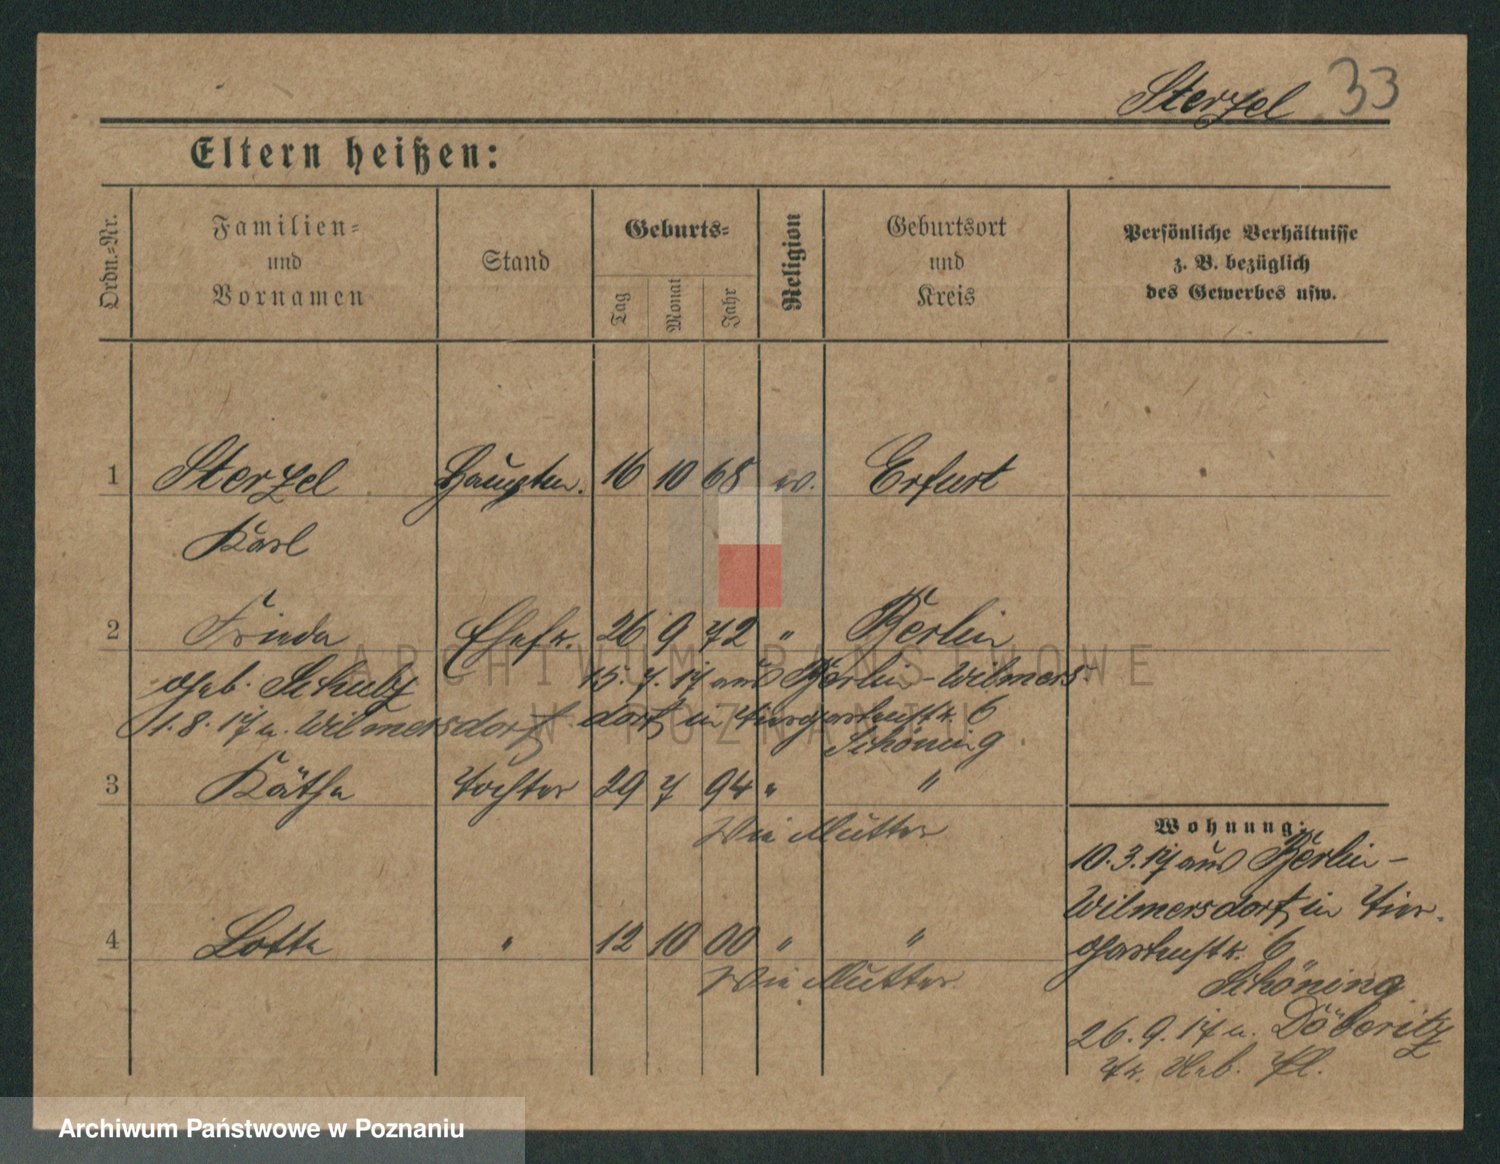 Sterzel 33
Eltern heißen:
Ordn.-Nr.
Familien-
und
Vornamen
Stand
Geburts-
Tag
Monat
Jahr
Religion
Geburtsort
und
Kreis
Persönliche Verhältnisse
z. B. bezüglich
des Gewerbes usw.
1 Sterzel Hauptm. 16 10 68 ev. Erfurt
Karl
2 Frieda Ehefr. 26 9 72 " Berlin
geb. Schulz 15.7.17 aus Berlin-Wilmers-
1.8.17 n. Wilmersdorf dorf in Tiergartenstr. 6
Schöning
3 Käthe Tochter 29 7 94 " "
Wie Mutter
4 Lotte " 12 10 00 " "
Wie Mutter
Wohnung:
10.3.17 aus Berlin-
Wilmersdorf in Tier-
gartenstr. 6
Schöning
26.9.17 n. Döberitz
Tr. Üb. Pl.
ARCHIWUM PAŃSTWOWE
W POZNANIU
Archiwum Państwowe w Poznaniu